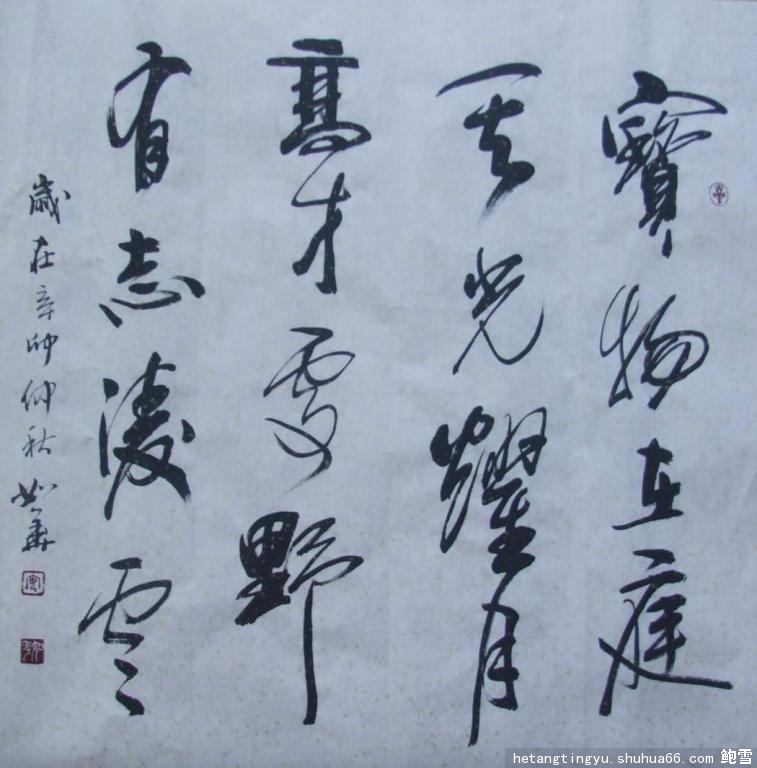 寶物在庭
光燿月
高才處野
有志淩雲
歲在辛卯仲秋
hetangtingyu.shuhua66.com 鲍雪